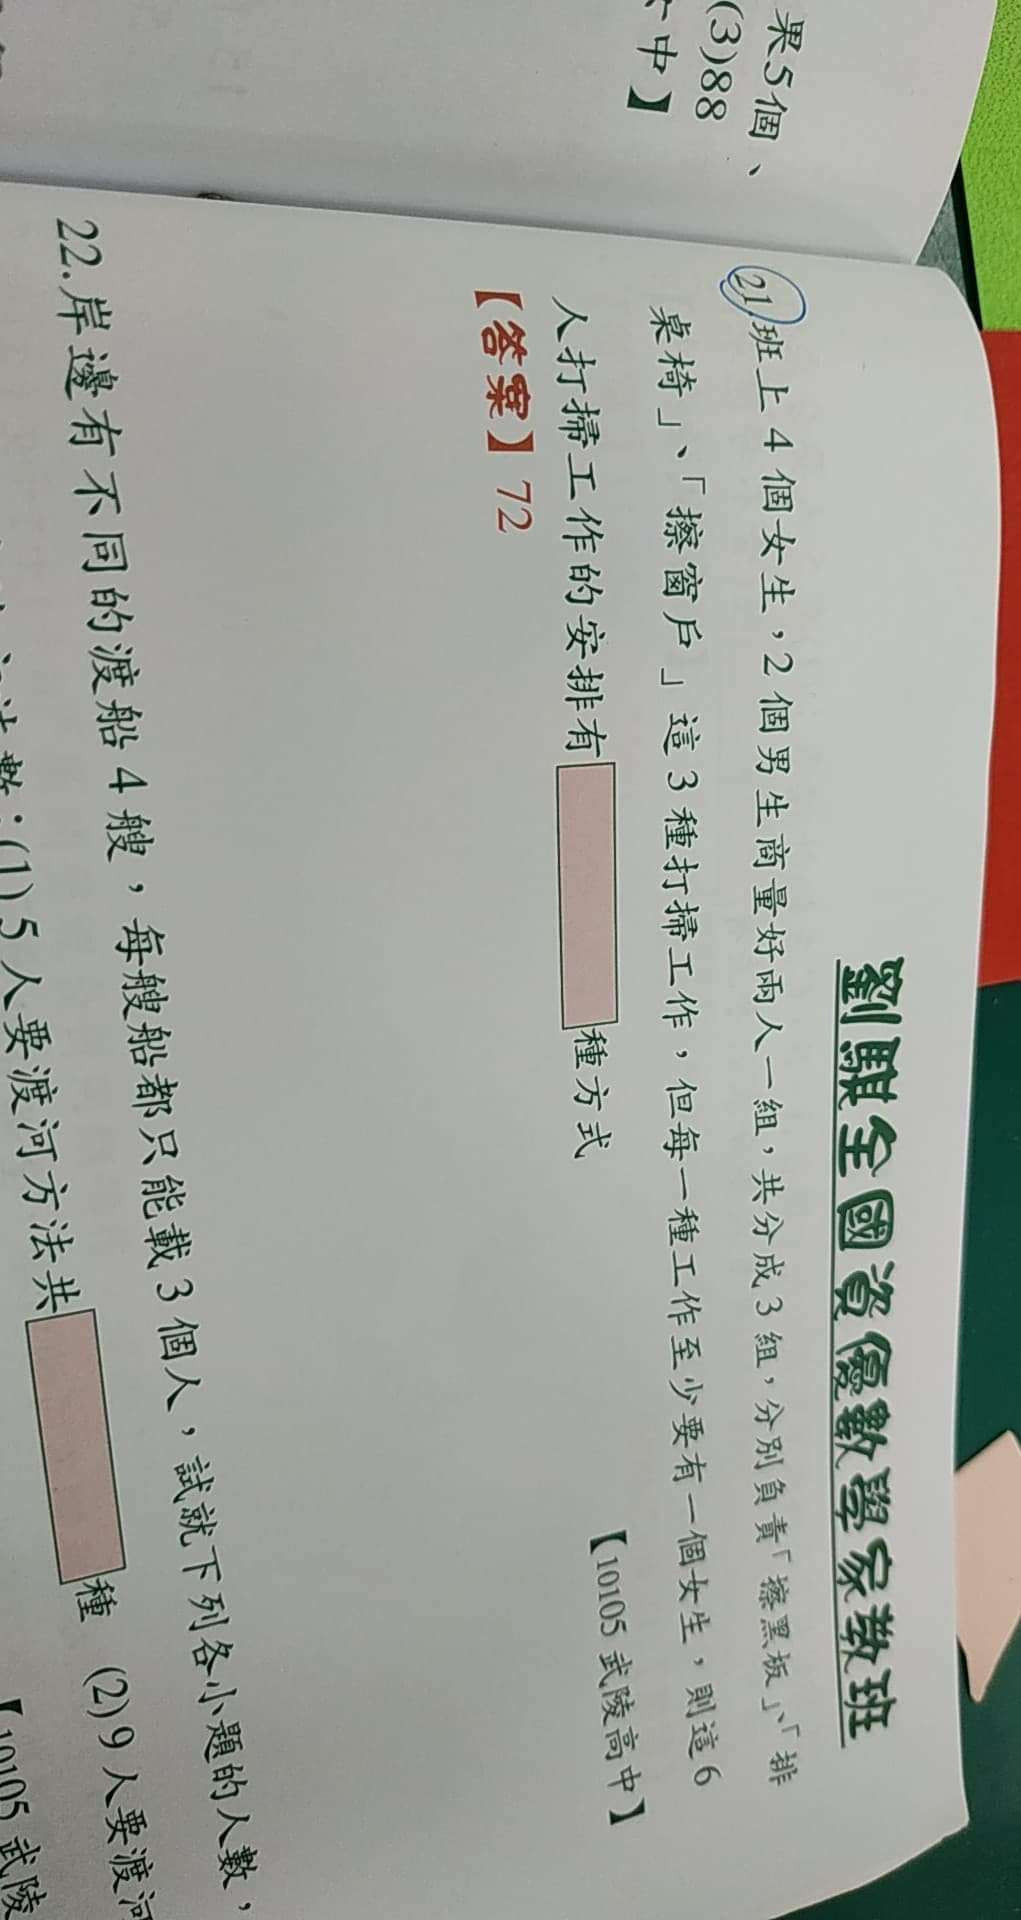 果5個、
(3)88
中】
劉騏全國資優數學家教班
21.班上 4 個女生，2 個男生商量好兩人一組，共分成 3 組，分別負責「擦黑板」、「排
桌椅」、「擦窗戶」這 3 種打掃工作，但每一種工作至少要有一個女生，則這 6
人打掃工作的安排有 種方式
【10105 武陵高中】
【答案】72
22.岸邊有不同的渡船 4 艘，每艘船都只能載 3 個人，試就下列各小題的人數，
數：(1) 5 人要渡河方法共 種 (2) 9 人要渡河
【10105 武陵